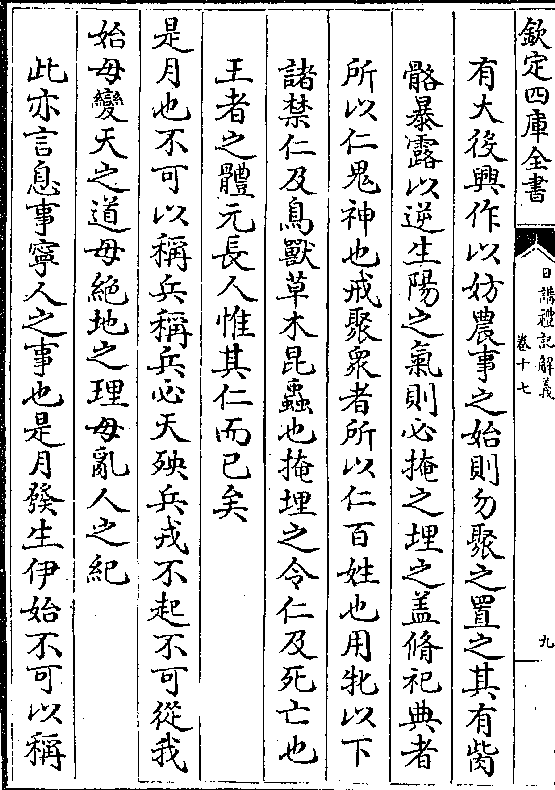 欽定四庫全書
日講禮記解義
卷十七
九
有大後興作以妨農事之始則勿聚之置之其有胔
骼暴露以逆生陽之氣則必掩之埋之盖脩祀典者
所以仁鬼神也戒聚衆者所以仁百姓也用牝以下
諸禁仁及鳥獸草木昆蟲也掩埋之令仁及死亡也
王者之體元長人惟其仁而已矣
是月也不可以稱兵稱兵必天殃兵戎不起不可從我
始毋變天之道毋絶地之理毋亂人之紀
此亦言息事寧人之事也是月發生伊始不可以稱